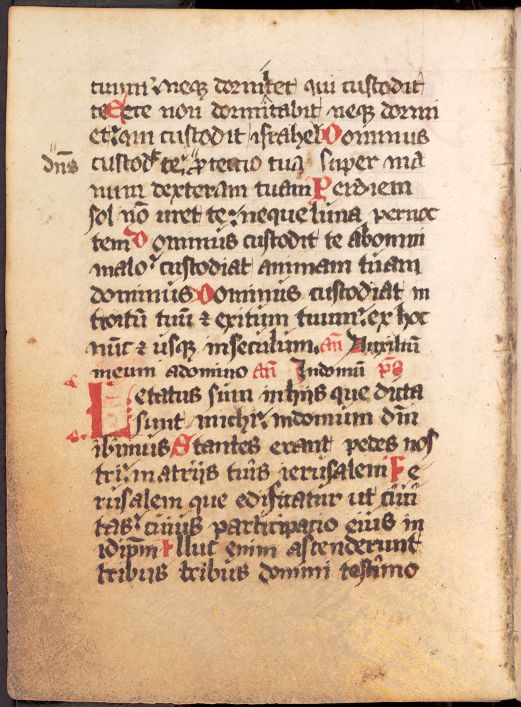 tuum: neqꝫ dormitet qui custodit
te Ecce non dormitabit neqꝫ dormi
et: qui custodit israhel Dominus
dn̄s custod̛ te: ꝓtectio tua super ma
num dexteram tuam Perdiem
sol nō uret te: neque luna pernoc
tem Dominus custodit te abomni
malo: custodiat animam tuam
dominus Dominus custodiat in
troitū tuū ⁊ exitum tuum: ex hoc
nūc ⁊ usqꝫ inseculum. an̄ Auxiliū
meum adomino an̄ Indomū p̄s
Letatus sum inhijs que dicta
sunt michi: indomum dn̄i
ibimus Stantes erant pedes nos
tri: inatrijs tuis ierusalem Ie
rusalem que edificatur ut ciui
tas: cuius participacio eius in
idip̄m Illuc enim ascenderunt
tribus tribus domini testimo